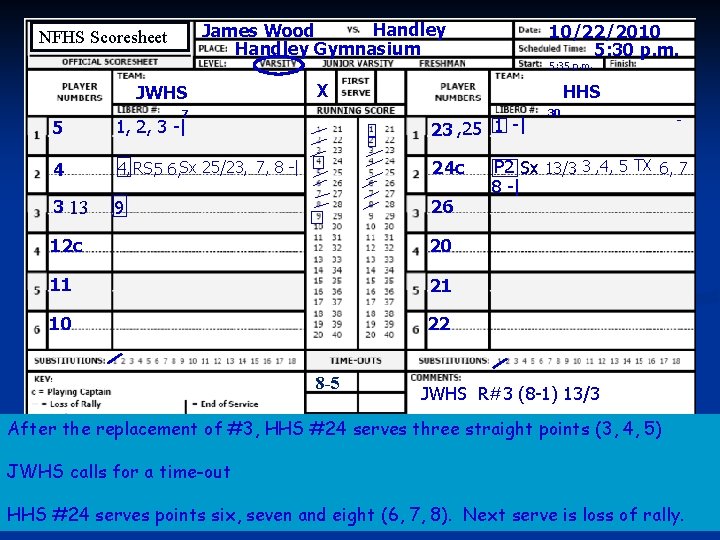 NFHS Scoresheet
James Wood VS. Handley
PLACE: Handley Gymnasium
Date: 10/22/2010
Scheduled Time: 5:30 p.m.
OFFICIAL SCORESHEET LEVEL: VARSITY JUNIOR VARSITY FRESHMAN Start: 5:35 p.m. Finish:
PLAYER NUMBERS TEAM: JWHS X FIRST SERVE PLAYER NUMBERS TEAM: HHS
LIBERO #: 7 RUNNING SCORE LIBERO #: 30
1 5 1, 2, 3 -| 1 23 ,25 1 -|
2 4 4, RS, 5 6, Sx 25/23, 7, 8 -| 2 24c P2 Sx 13/3 3 ,4, 5 TX 6, 7
8 -|
3 3 13 9 3 26
4 12c 4 20
5 11 5 21
6 10 6 22
1 21
2 22
3 23
4 24
5 25
6 26
7 27
8 28
9 29
10 30
11 31
12 32
13 33
14 34
15 35
16 36
17 37
18 38
19 39
20 40
SUBSTITUTIONS: 1 2 3 4 5 6 7 8 9 10 11 12 13 14 15 16 17 18 TIME-OUTS SUBSTITUTIONS: 1 2 3 4 5 6 7 8 9 10 11 12 13 14 15 16 17 18
KEY: 8-5 COMMENTS:
c = Playing Captain JWHS R#3 (8-1) 13/3
— = Loss of Rally | = End of Service
After the replacement of #3, HHS #24 serves three straight points (3, 4, 5)
JWHS calls for a time-out
HHS #24 serves points six, seven and eight (6, 7, 8). Next serve is loss of rally.